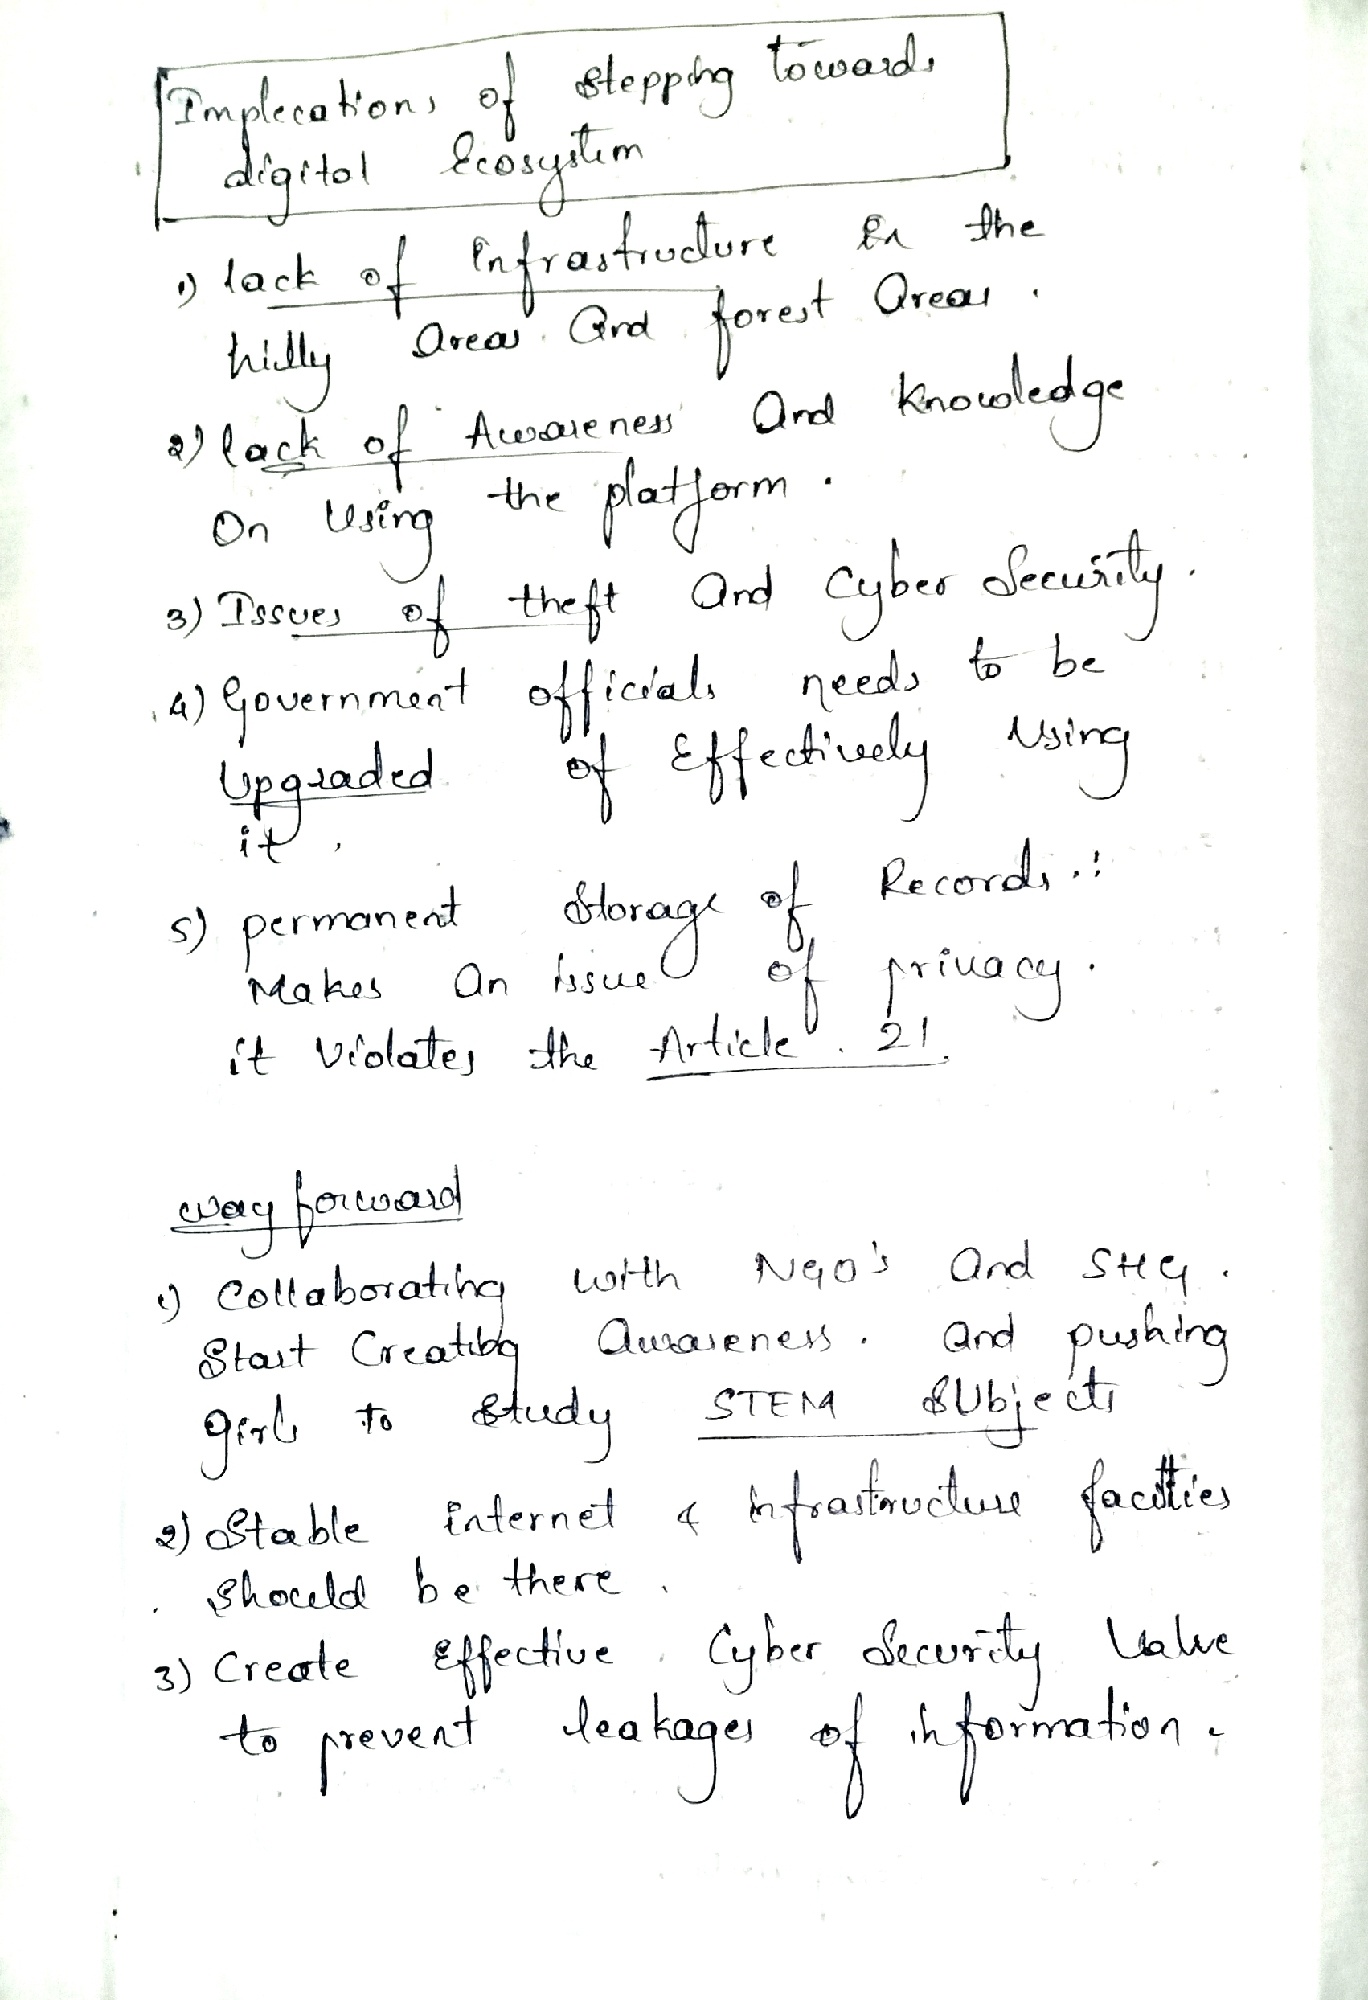 Implecations of stepping towards
digital Ecosystem
1) lack of infrastructure in the
hilly areas and forest areas.
2) lack of Awareness and knowledge
on using the platform.
3) Issues of theft and cyber security.
4) Government officials needs to be
upgraded of Effectively using
it.
5) permanent storage of Records.
Makes an issue of privacy.
it violates the Article. 21.
way forward
1) Collaborating with NGO's and SHG.
Start Creating awareness. and pushing
girls to study STEM subjects
2) Stable internet & infrastructure facilties
should be there.
3) Create Effective Cyber security Valve
to prevent leakages of information.